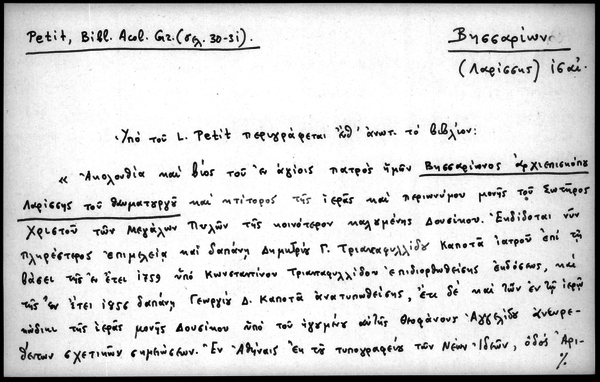 Petit, Bibl. Acol. Gr. (σελ. 30-31).
Βησσαρίωνος
(Λαρίσσης) ἰσαί.
Ὑπὸ τοῦ L. Petit περιγράφεται ἔνθ' ἀνωτ. τὸ βιβλίον:
« Ἀκολουθία καὶ βίος τοῦ ἐν ἁγίοις πατρὸς ἡμῶν Βησσαρίωνος ἀρχιεπισκόπου
Λαρίσσης τοῦ θαυματουργοῦ καὶ κτίτορος τῆς ἱερᾶς καὶ περιωνύμου μονῆς τοῦ Σωτῆρος
Χριστοῦ τῶν Μεγάλων Πυλῶν τῆς κοινότερον καλουμένης Δουσίκου. Ἐκδίδοται νῦν
πληρέστερος ἐπιμελείᾳ καὶ δαπάνῃ Δημητρίου Γ. Τριανταφυλλίδου Καποτᾶ ἰατροῦ ἐπὶ τῇ
βάσει τῆς ἐν ἔτει 1759 ὑπὸ Κωνσταντίνου Τριανταφυλλίδου ἐπιδιορθωθείσης ἐκδόσεως, καὶ
τῆς ἐν ἔτει 1856 δαπάνῃ Γεωργίου Δ. Καποτᾶ ἀνατυπωθείσης, ἔτι δὲ καὶ τῶν ἐν τῷ ἱερῷ
κώδικι τῆς ἱερᾶς μονῆς Δουσίκου ὑπὸ τοῦ ἡγουμένου αὐτῆς Θεοφάνους Ἀγγελίδου ἀνευρε-
θέντων σχετικῶν σημειώσεων. Ἐν Ἀθήναις ἐκ τοῦ τυπογραφείου τῶν Νέων Ἰδεῶν, ὁδὸς Ἀρι-
%